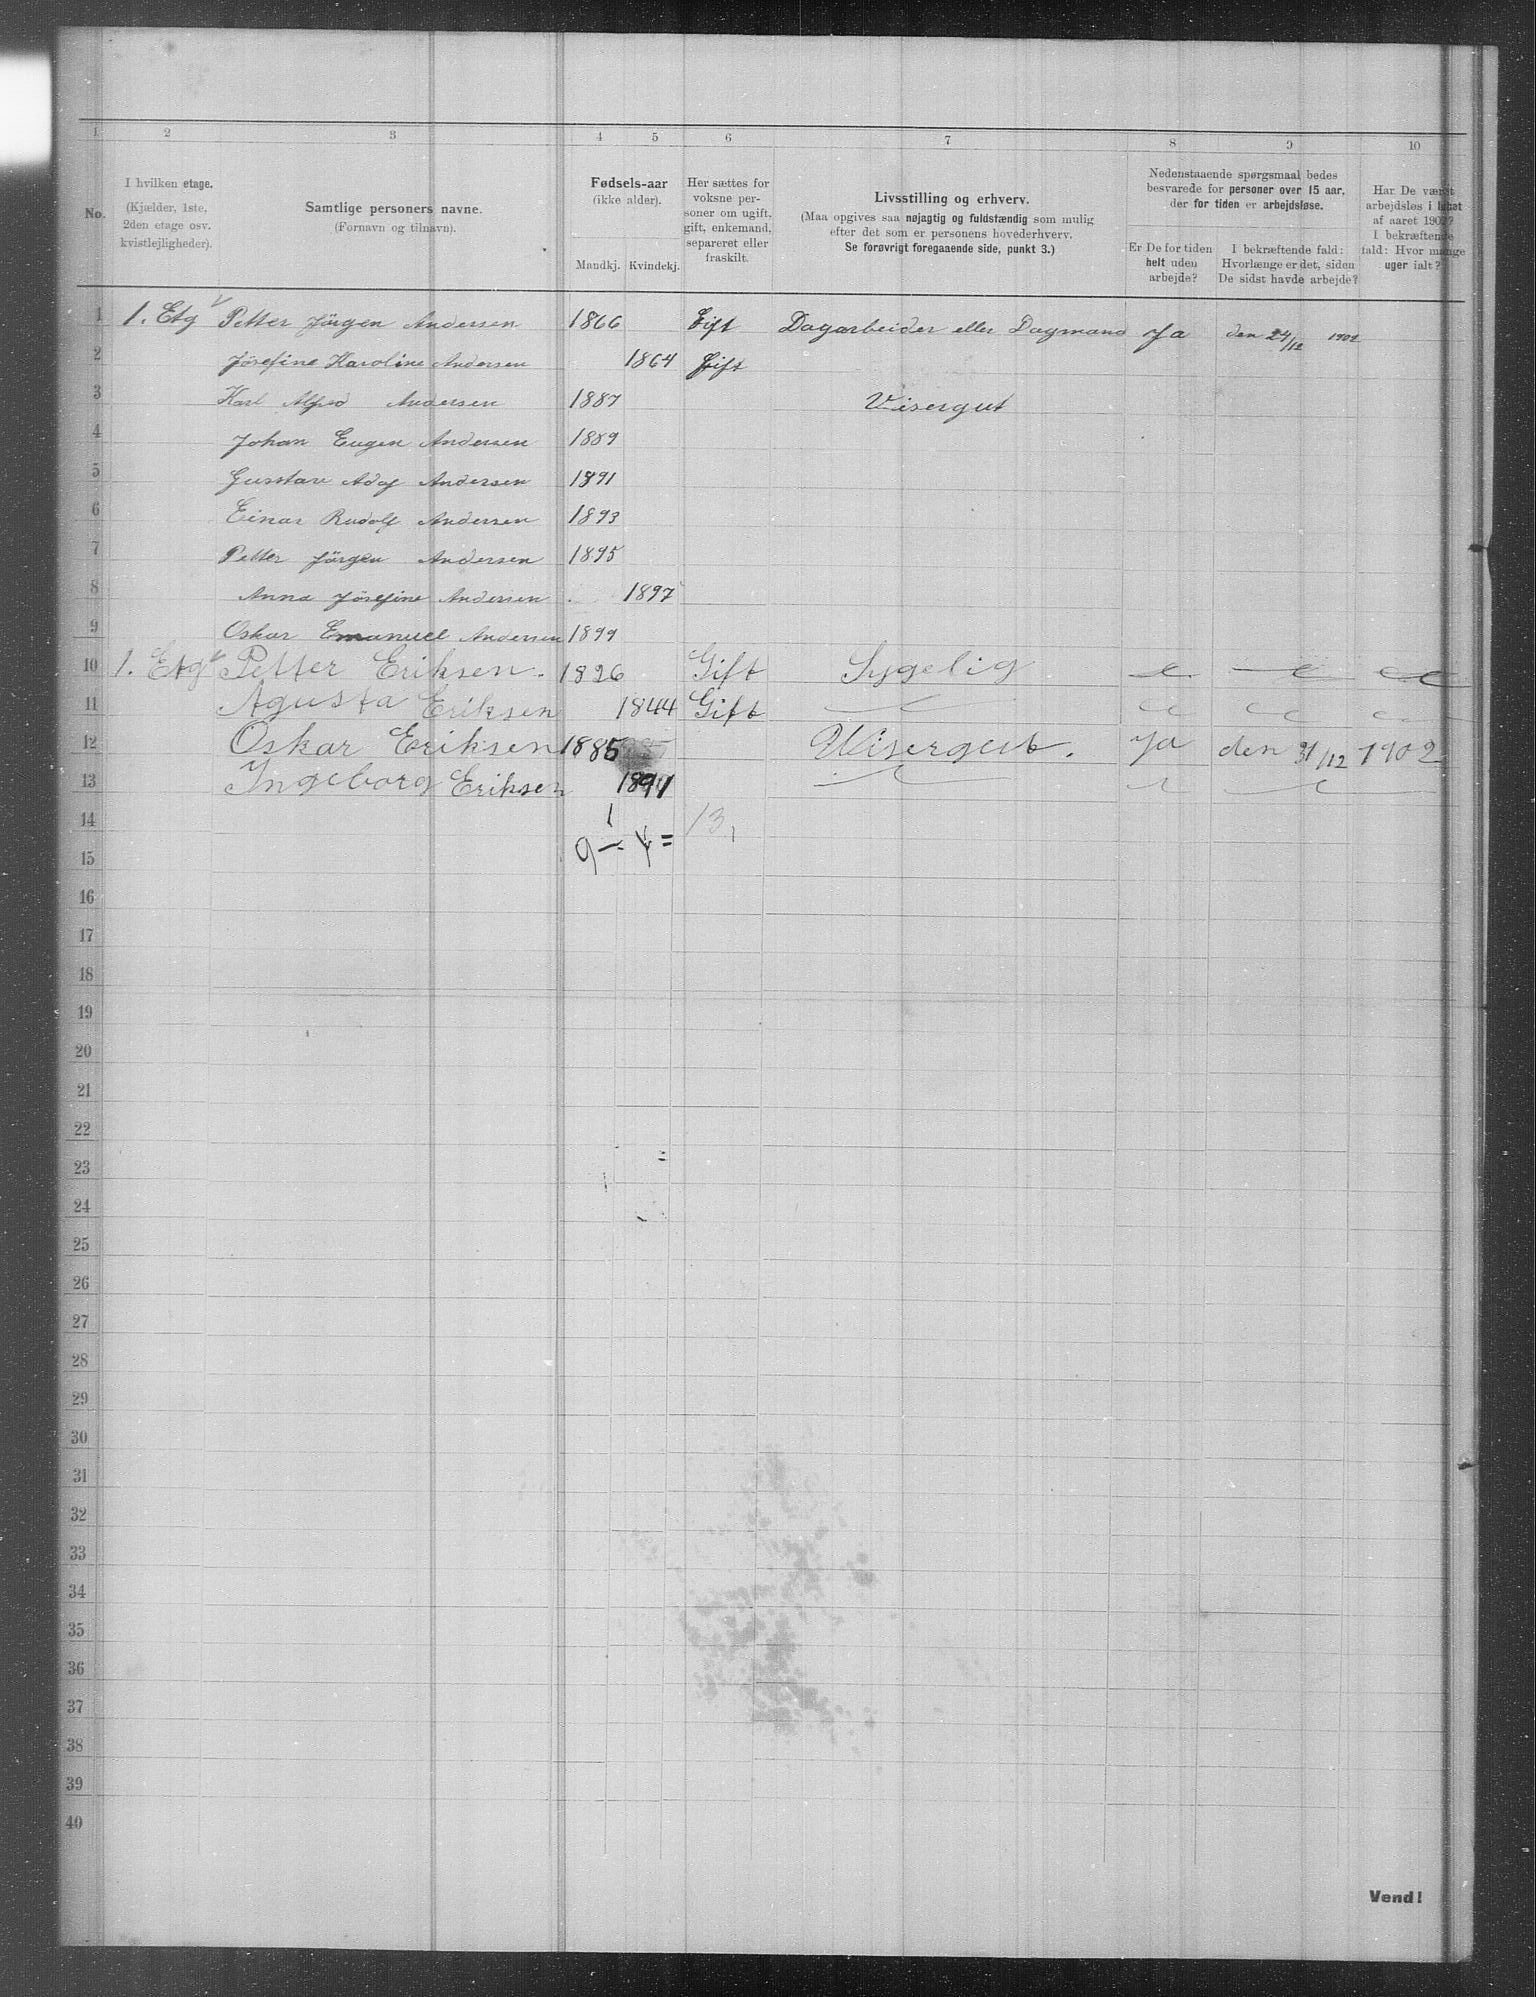 1 2 3 4 5 6 7 8 9 10
No.
I hvilken etage.
(Kjælder, 1ste,
2den etage osv.
kvistlejligheder).
Samtlige personers navne.
(Fornavn og tilnavn).
Fødsels-aar
(ikke alder).
Mandkj. Kvindekj.
Her sættes for
voksne per-
soner om ugift,
gift, enkemand,
separeret eller
fraskilt.
Livsstilling og erhverv.
(Maa opgives saa nøjagtig og fuldstændig som mulig
efter det som er personens hovederhverv.
Se forøvrigt foregaaende side, punkt 3.)
Nedenstaaende spørgsmaal bedes
besvarede for personer over 15 aar,
der for tiden er arbejdsløse.
Er De for tiden
helt uden
arbejde?
I bekræftende fald:
Hvorlænge er det, siden
De sidst havde arbejde?
Har De været
arbejdsløs i løbet
af aaret 1902?
I bekræftende
fald: Hvor mange
uger ialt?
1 1. Etg Petter Jörgen Andersen 1866 Gift Dagarbeider eller Dagmand Ja den 24/12 1902
2 Jösefine Karoline Andersen 1864 Gift
3 Karl Alfred Andersen 1887 Visergut
4 Johan Eugen Andersen 1889
5 Gusstav Adof Andersen 1891
6 Einar Rudolf Andersen 1893
7 Petter Jörgen Andersen 1895
8 Anna Jösefine Andersen 1897
9 Oskar Emanuel Andersen 1899
10 1. Etg Petter Eriksen. 1826 Gift Sygelig
11 Agusta Eriksen 1844 Gift
12 Oskar Eriksen 1885 Visergut. Ja den 31/12 1902
13 Ingeborg Eriksen 1891
14 13,
15 9 — 4 =
16
17
18
19
20
21
22
23
24
25
26
27
28
29
30
31
32
33
34
35
36
37
38
39
40
Vend!